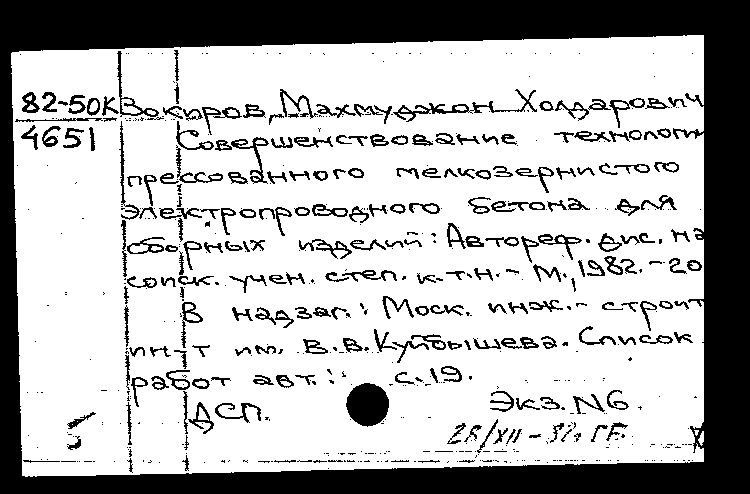 82-50К Зокиров, Махмуджон Холдарович
4651 Совершенствование технологи
прессованного мелкозернистого
электропроводного бетона для
сборных изделий: Автореф. дис. на
соиск. учен. степ. к.т.н. - М., 1982. - 20
В надзаг.: Моск. инж.- строит
ин-т им. В.В. Куйбышева. Список
работ авт.: с. 19.
ДСП. Экз. N6.
28/XII - 82. ГБ.